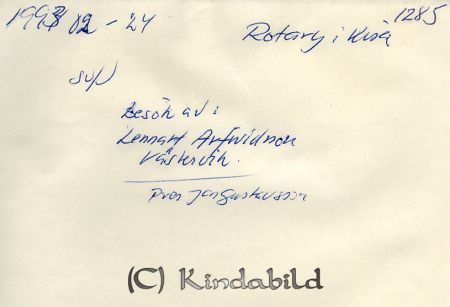 1993 02 - 24
Rotary i Kisa
1285
Besök av:
Lennart Arfwidsson
Västervik.
Pres Jan Gustavsson
(C) Kindabild